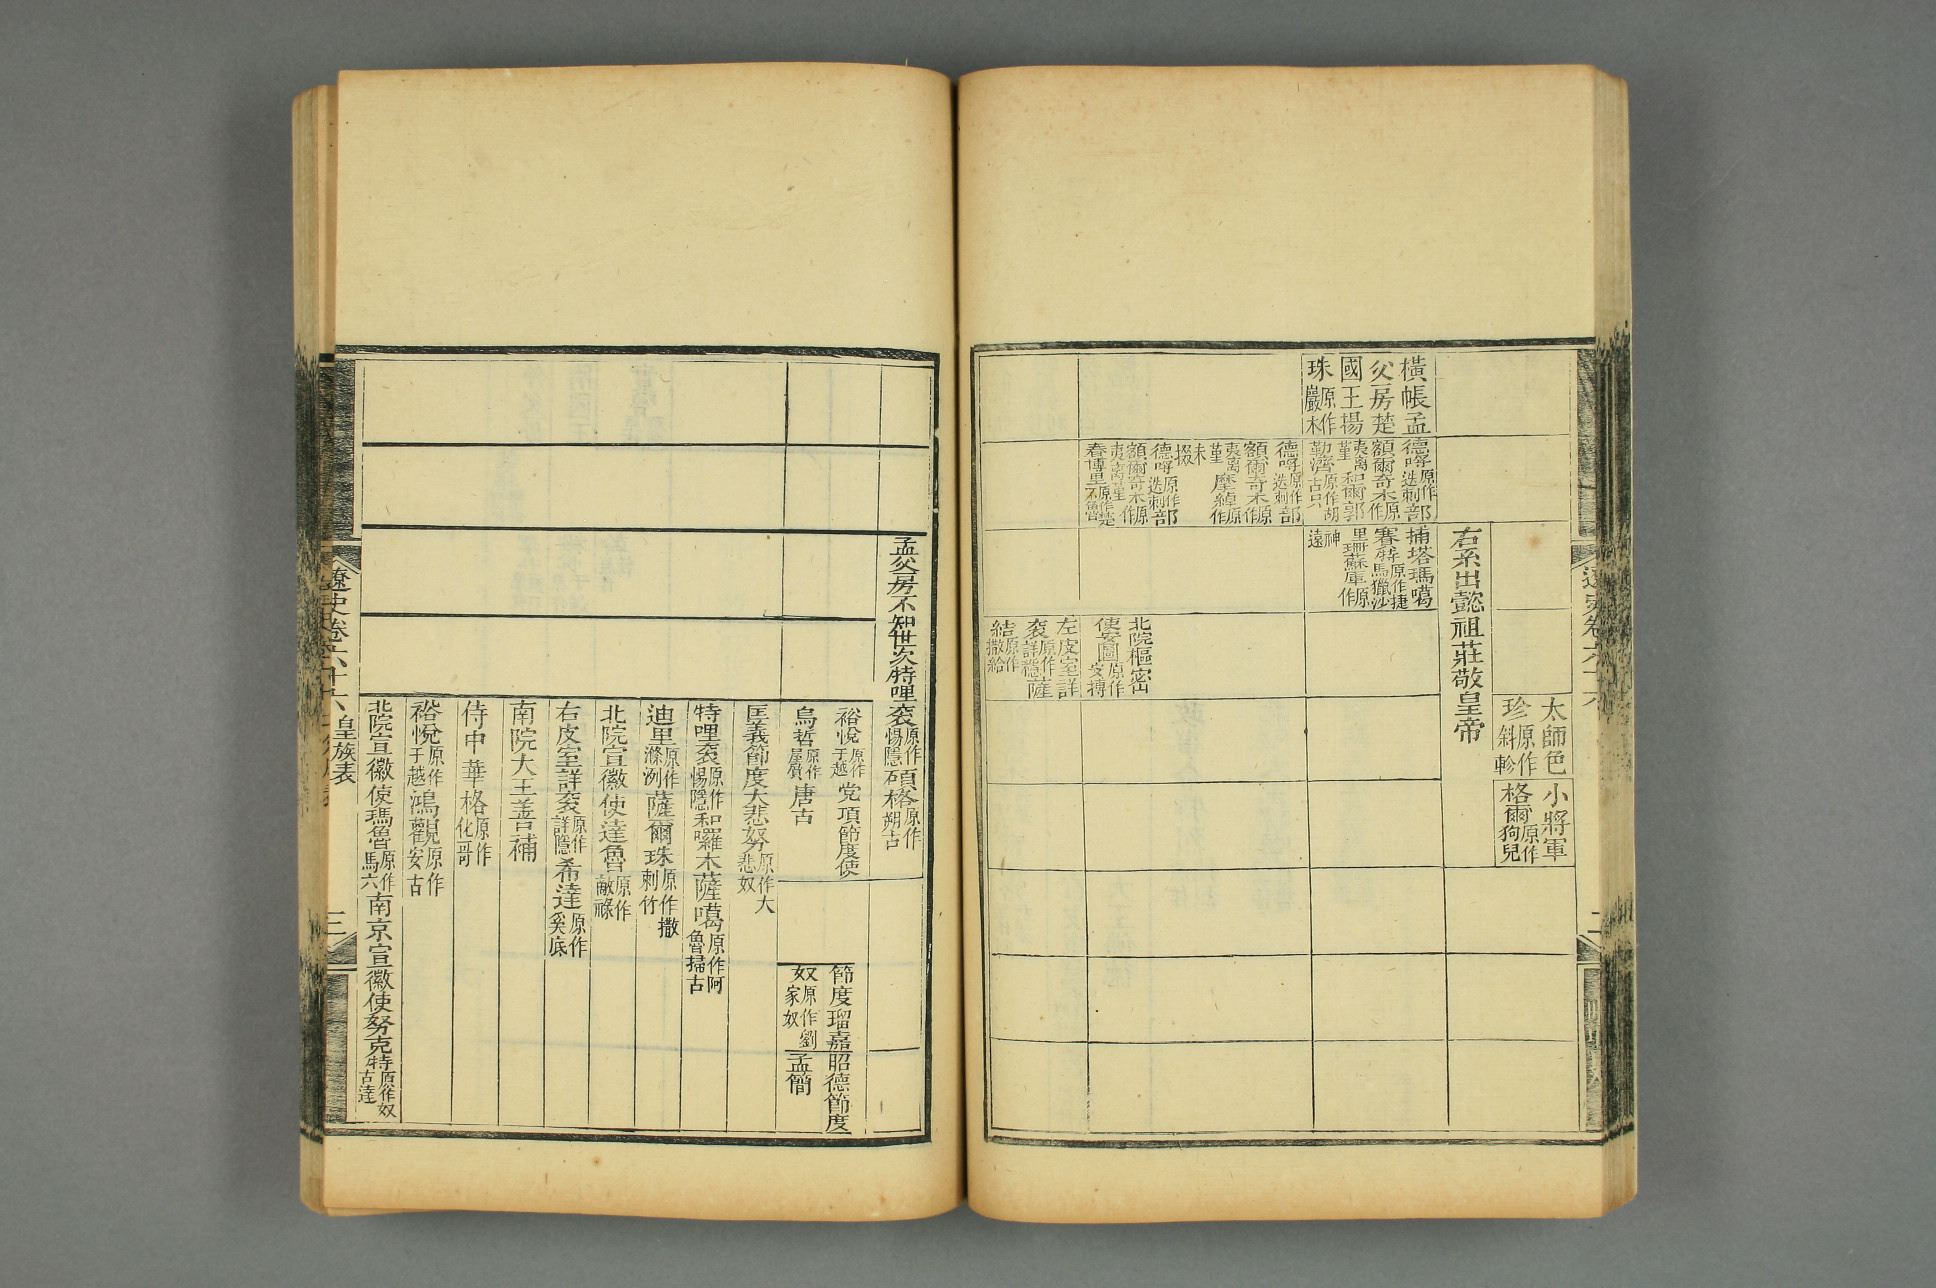 遼史卷六十六
二
太師色
珍原作斜軫
小將軍
格爾原作狗兒
右系出懿祖莊敬皇帝
橫帳孟
父房楚
國王揚
珠原作巖木
德哷原作迭剌部
額爾奇木原作
夷离堇和爾郭
勒濟原作胡古只
楚塔瑪噶
賽特原作捷馬獵沙
里珊蘇庫原作
神遠
德哷原作迭剌部
額爾奇木原作
夷离堇摩綽原作
末掇
德哷原作迭剌部
額爾奇木原作
夷离堇
春博里原作楚不魯
北院樞密
使安圖原作安摶
左皮室詳
袞原作詳穩薩
結原作撒給
孟父房不知世次特哩袞原作惕隱碩格原作朔古
裕悅原作于越党項節度使
烏哲原作屋質唐古
節度瑠嘉
奴原作劉家奴
昭德節度
孟簡
匡義節度大悲努原作大悲奴
特哩袞原作惕隱和囉木薩噶原作阿魯掃古
迪里原作滌洌薩爾珠原作撒剌竹
北院宣徽使達魯原作敵祿
右皮室詳袞原作詳隱希達原作奚底
南院大王善補
侍中華格原作化哥
裕悅原作于越鴻觀原作安古
北院宣徽使瑪魯原作馬六南京宣徽使努克特原作奴古達
遼史卷六十六
皇族表
三